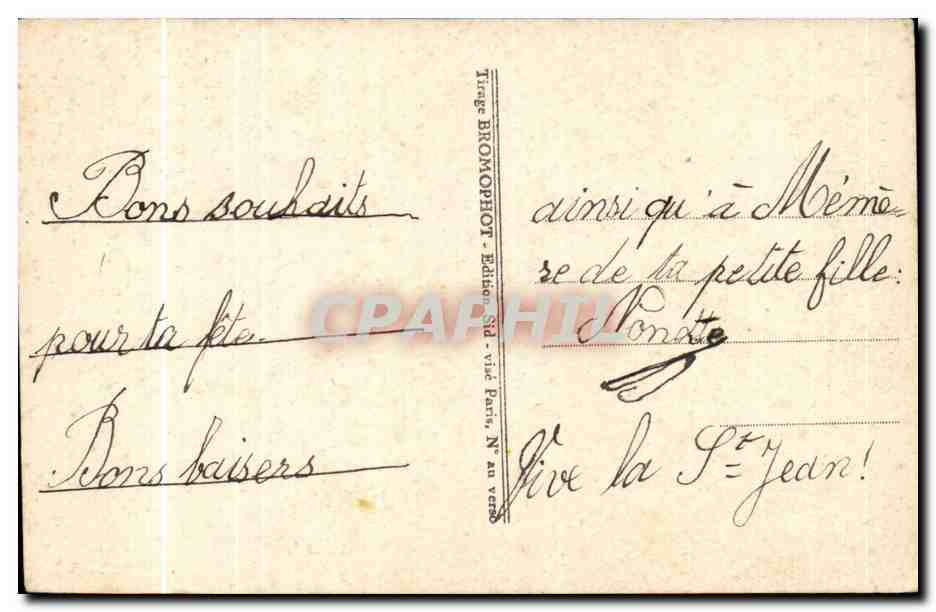 Bons souhaits
pour ta fête.
Bons baisers
Tirage BROMOPHOT - Edition Sid - visé Paris, N° au verso
ainsi qu'à Mémè=
re de ta petite fille.
Vive la St= Jean!
CPAPHIL